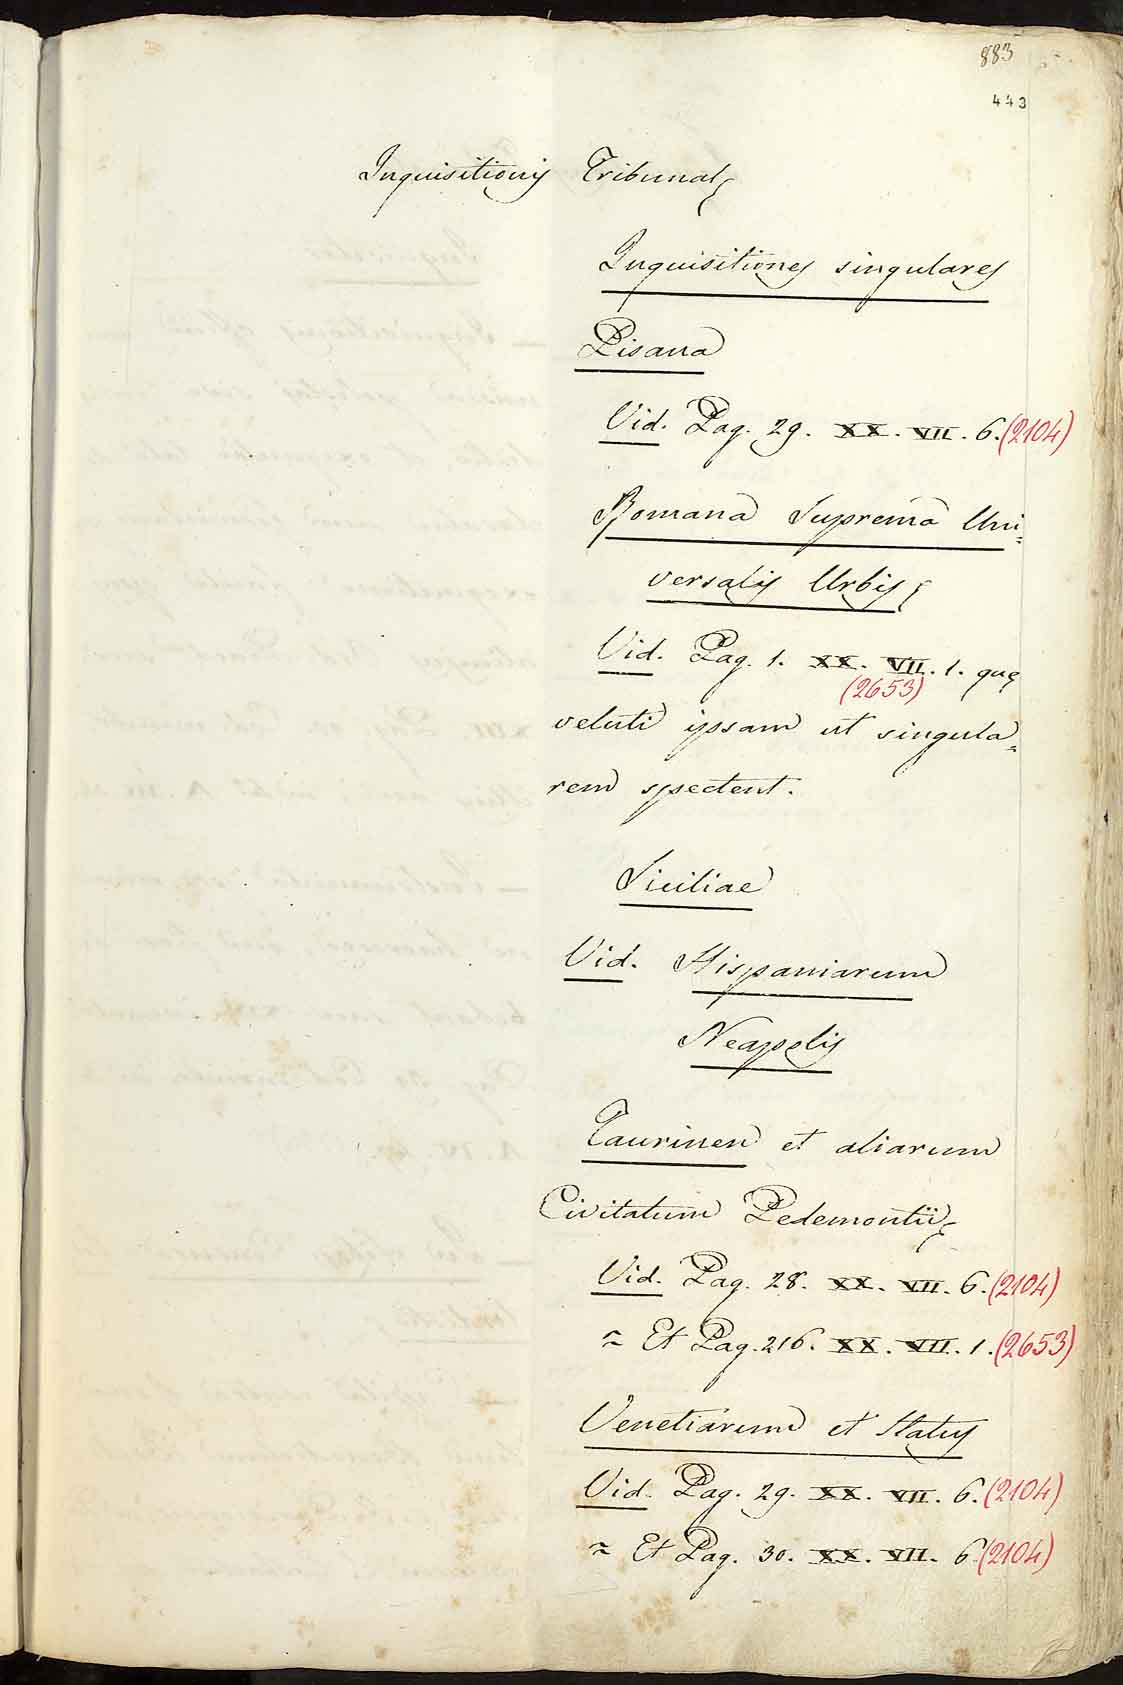 883
443
Inquisitionis Tribunal
Inquisitiones singulares
Pisana
Vid. Pag. 29. XX. VII. 6. (2104)
Romana Suprema Uni=
versalis Urbis
Vid. Pag. 1. XX. VII. 1. quę
(2653)
veluti ipsam ut singula=
rem spectent.
Siciliae
Vid. Hispaniarum
Neapolis
Taurinen et aliarum
Civitatum Pedemontii
Vid. Pag. 28. XX. VII. 6. (2104)
~ Et Pag. 216. XX. VII. 1. (2653)
Venetiarum et Status
Vid. Pag. 29. XX. VII. 6. (2104)
~ Et Pag. 30. XX. VII. 6 (2104)